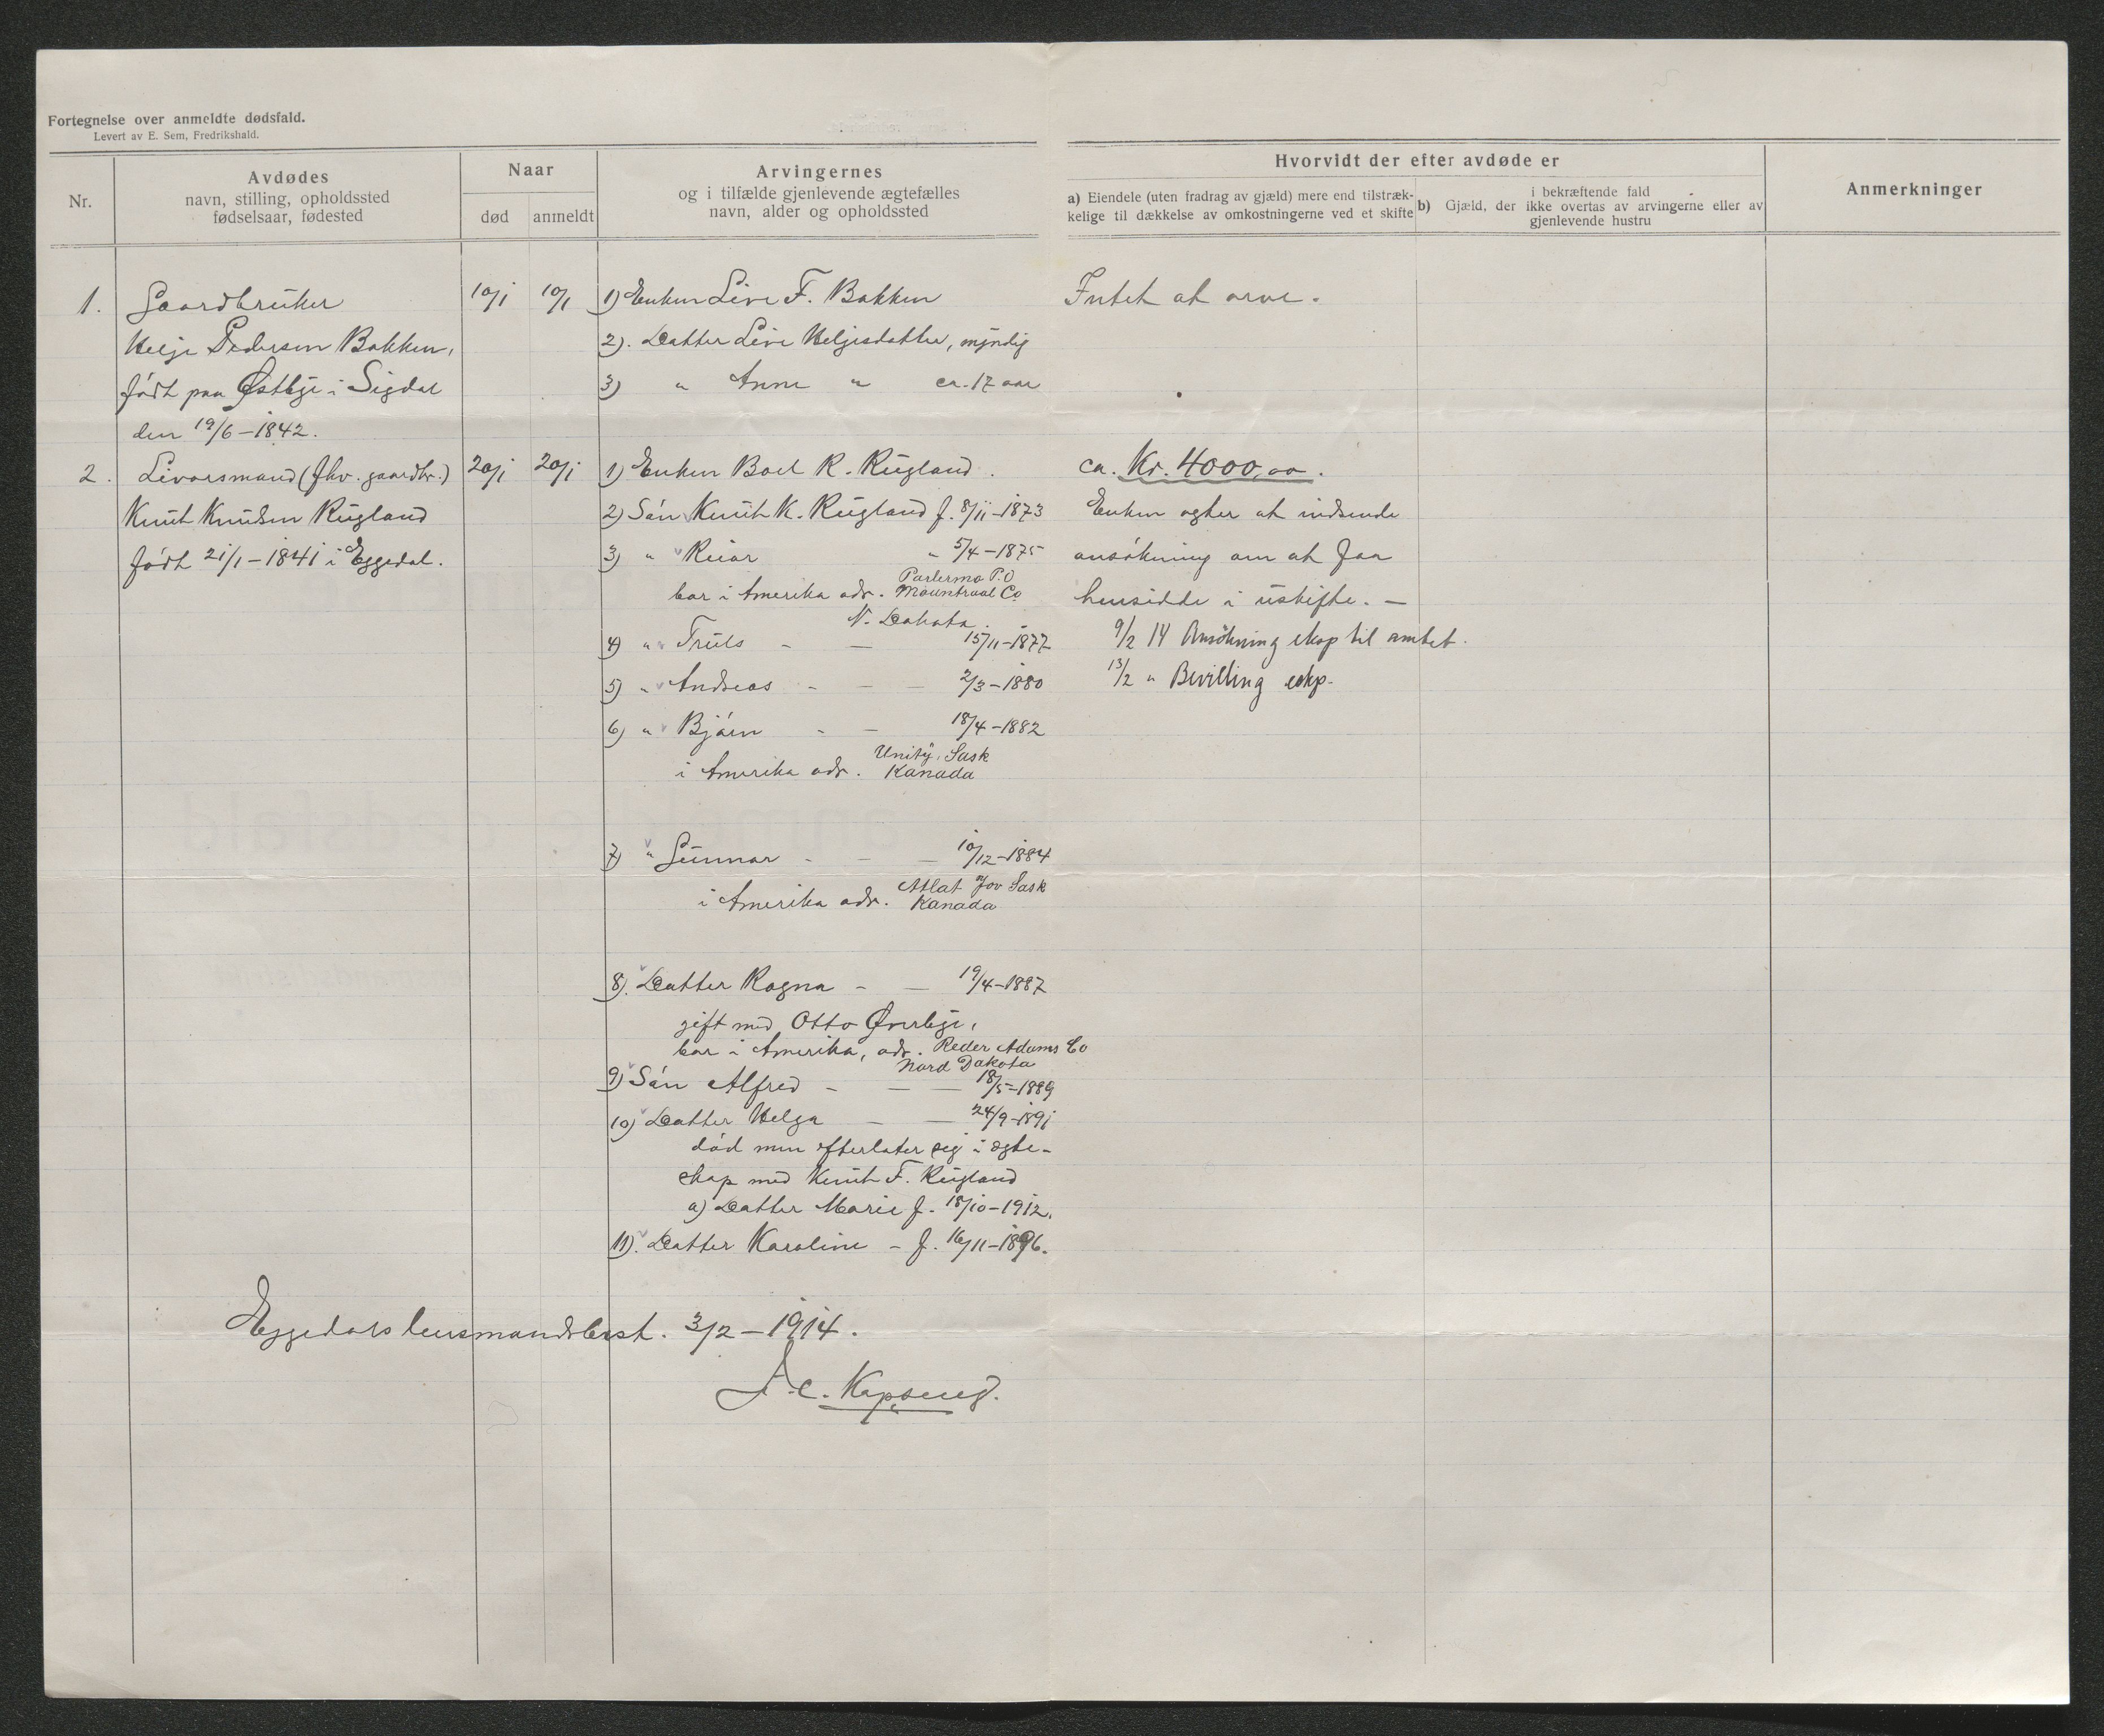 Fortegnelse over anmeldte dødsfald.
Levert av E. Sem, Fredrikshald.
Nr.
Avdødes
navn, stilling, opholdssted
fødselsaar, fødested
Naar
død
anmeldt
Arvingernes
og i tilfælde gjenlevende ægtefælles
navn, alder og opholdssted
Hvorvidt der efter avdøde er
a) Eiendele (uten fradrag av gjæld) mere end tilstræk-
kelige til dækkelse av omkostningerne ved et skifte
i bekræftende fald
b) Gjæld, der ikke overtas av arvingerne eller av
gjenlevende hustru
Anmerkninger
1. Gaardbruker
Helge Pedersen Bakken,
født paa Østbye i Sigdal
den 19/6-1842.
10/1
10/1
1) Enken Live F. Bakken
2). Datter Live Helgesdatter, myndig
3) " Anne " ca. 17 aar
Intet at arve.
2. Livørsmand (fhv. gaardbr.)
Knut Knudsen Rugland
født 21/1-1841 i Eggedal.
20/1
20/1
1) Enken Boel R. Rugland.
2) Søn Knut K. Rugland f. 8/11-1873
3) " Reiar " 5/4-1875
bor i Amerika adr. Parlermo P.O
Mountraal Co
N. Dakota.
4) " Truls - — 15/11-1877
5) " Andreas - — — 2/3-1880
6) " Bjørn - — 18/4-1882
i Amerika adr. Unity, Sask
Kanada
7) " Gunnar - — — 10/12-1884
i Amerika adr. Atlat Sask
Kanada
8). Datter Ragna - — 19/4-1887
gift med Otto Øverbye,
bor i Amerika, adr. Reder Adams Co
Nord Dakota
9) Søn Alfred - — — 18/5-1889
10) Datter Helga — — 24/9-1891
død men efterlater seg i egte-
skap med Knut F. Rugland
a) Datter Marie f. 18/10-1912.
11). Datter Karoline - f. 16/11-1896.
ca. Kr. 4000,00.
Enken agter at indsende
ansøkning om at faa
hensidde i uskifte. —
9/2 14 Ansökning eksp til amtet.
13/2 " Bevilling eksp.
Eggedals lensmandsbest. 3/2-1914.
A. C. Kopseng.